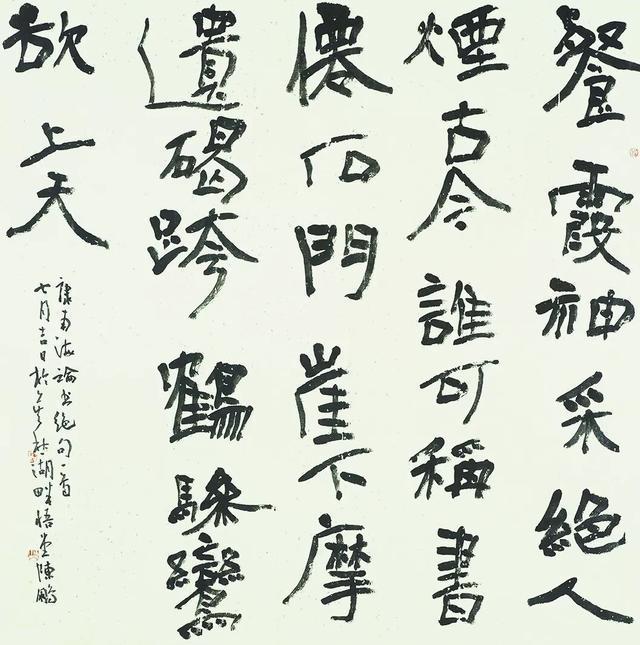 餐霞神采絕人
煙古今誰可稱書
僊石門崖下摩
遺碣跨鶴驂鸞
欲上天
康南海論書絕句一首
七月吉日於湖畔悟堂陳鵬